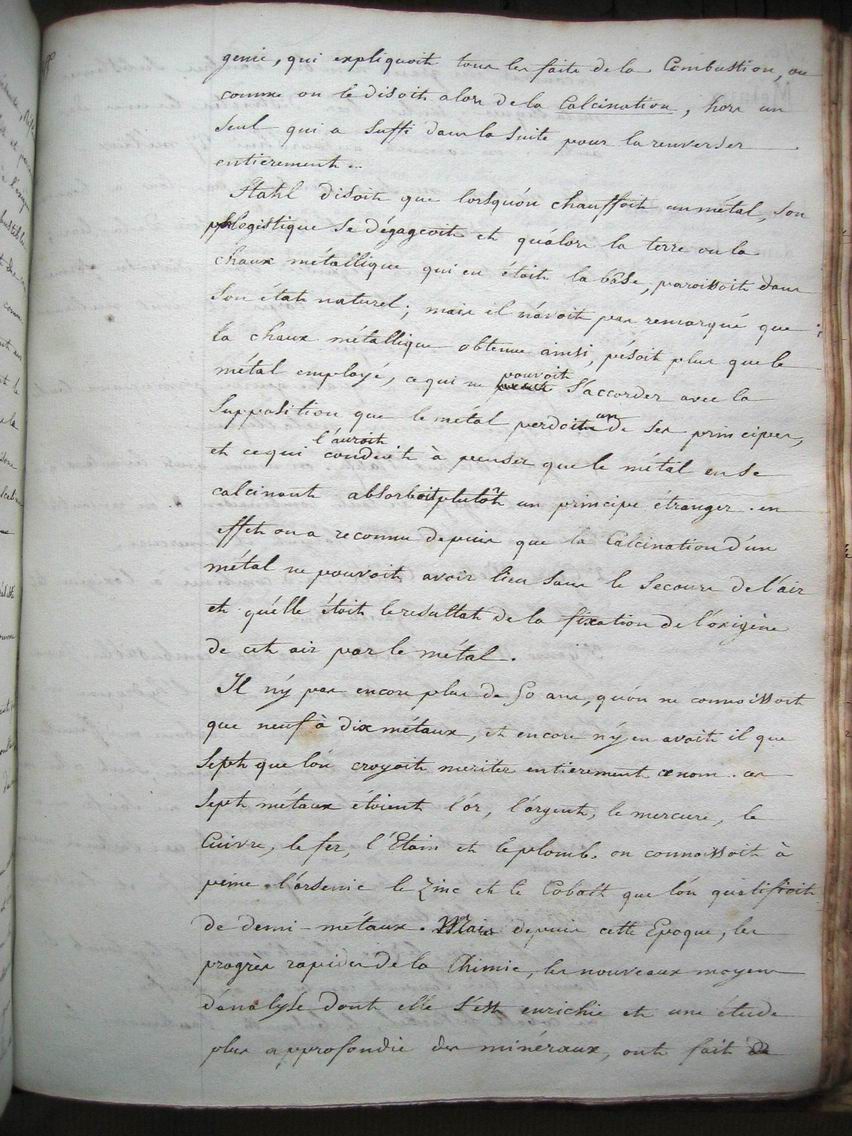 genie, qui expliquoit tous les faits de la Combustion, ou
comme on le disoit alors de la Calcination, hors un
seul qui a suffi dans la suite pour la renverser
entierement..
Stahl disoit que lorsqu'on chauffoit un métal, son
phlogistique se dégageoit et qu'alors la terre ou la
chaux métallique qui en étoit la bâse, paroissoit dans
son état naturel; mais il n'avoit pas remarqué que
la chaux métallique obtenue ainsi, pésoit plus que le
métal employé, ce qui ne pouvoit s'accorder avec la
supposition que le metal perdoit un de ses principes,
et ce qui l'auroit conduit à penser que le métal en se
calcinant absorboit plutôt un principe étranger. en
effet on a reconnu depuis que la Calcination d'un
métal ne pouvoit avoir lieu sans le secours de l'air
et qu'elle étoit le resultat de la fixation de l'oxigène
de cet air par le métal.
Il n'y pas encore plus de 50 ans, qu'on ne connoissoit
que neuf à dix métaux, et encore n'y en avoit il que
sept que l'on croyoit meriter entierement ce nom. ces
sept métaux étoient l'or, l'argent, le mercure, le
Cuivre, le fer, l'Etain et le plomb. on connoissoit à
peine l'arsenic le Zinc et le Cobalt que l'on qualifioit
de demi-métaux. Mais depuis cette Epoque, les
progrès rapides de la Chimie, les nouveaux moyens
d'analyse dont elle s'est enrichie et une étude
plus approfondie des minéraux, ont fait